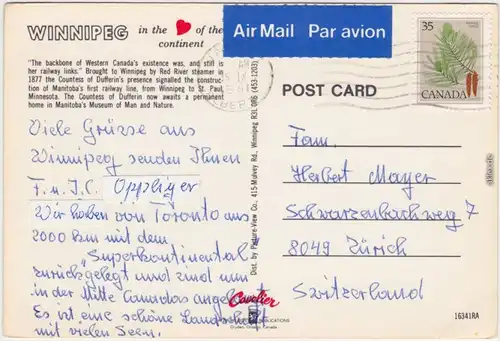 WINNIPEG in the ♥ of the
continent
"The backbone of Western Canada's existence was, and still is
her railway links." Brought to Winnipeg by Red River steamer in
1877 the Countess of Dufferin's presence signalled the construc-
tion of Manitoba's first railway line, from Winnipeg to St. Paul,
Minnesota. The Countess of Dufferin now awaits a permanent
home in Manitoba's Museum of Man and Nature.
Viele Grüsse aus
Winnipeg senden Ihnen
F. u. J.C. Oppliger
Wir haben von Toronto aus
2000 km mit dem
"Superkontinental"
zurückgelegt und sind nun
in der Mitte Canadas angelangt
Es ist eine schöne Landschaft
mit vielen Seen.
Dist. by Picture-View Co., 415 Mulvey Rd., Winnipeg R3L 0R6 (453-1203)
Cavalier
Air Mail Par avion
35
CANADA
POST CARD
Fam.
Herbert Mayer
Schwarzenbachweg 7
8049 Zürich
Switzerland
16341RA